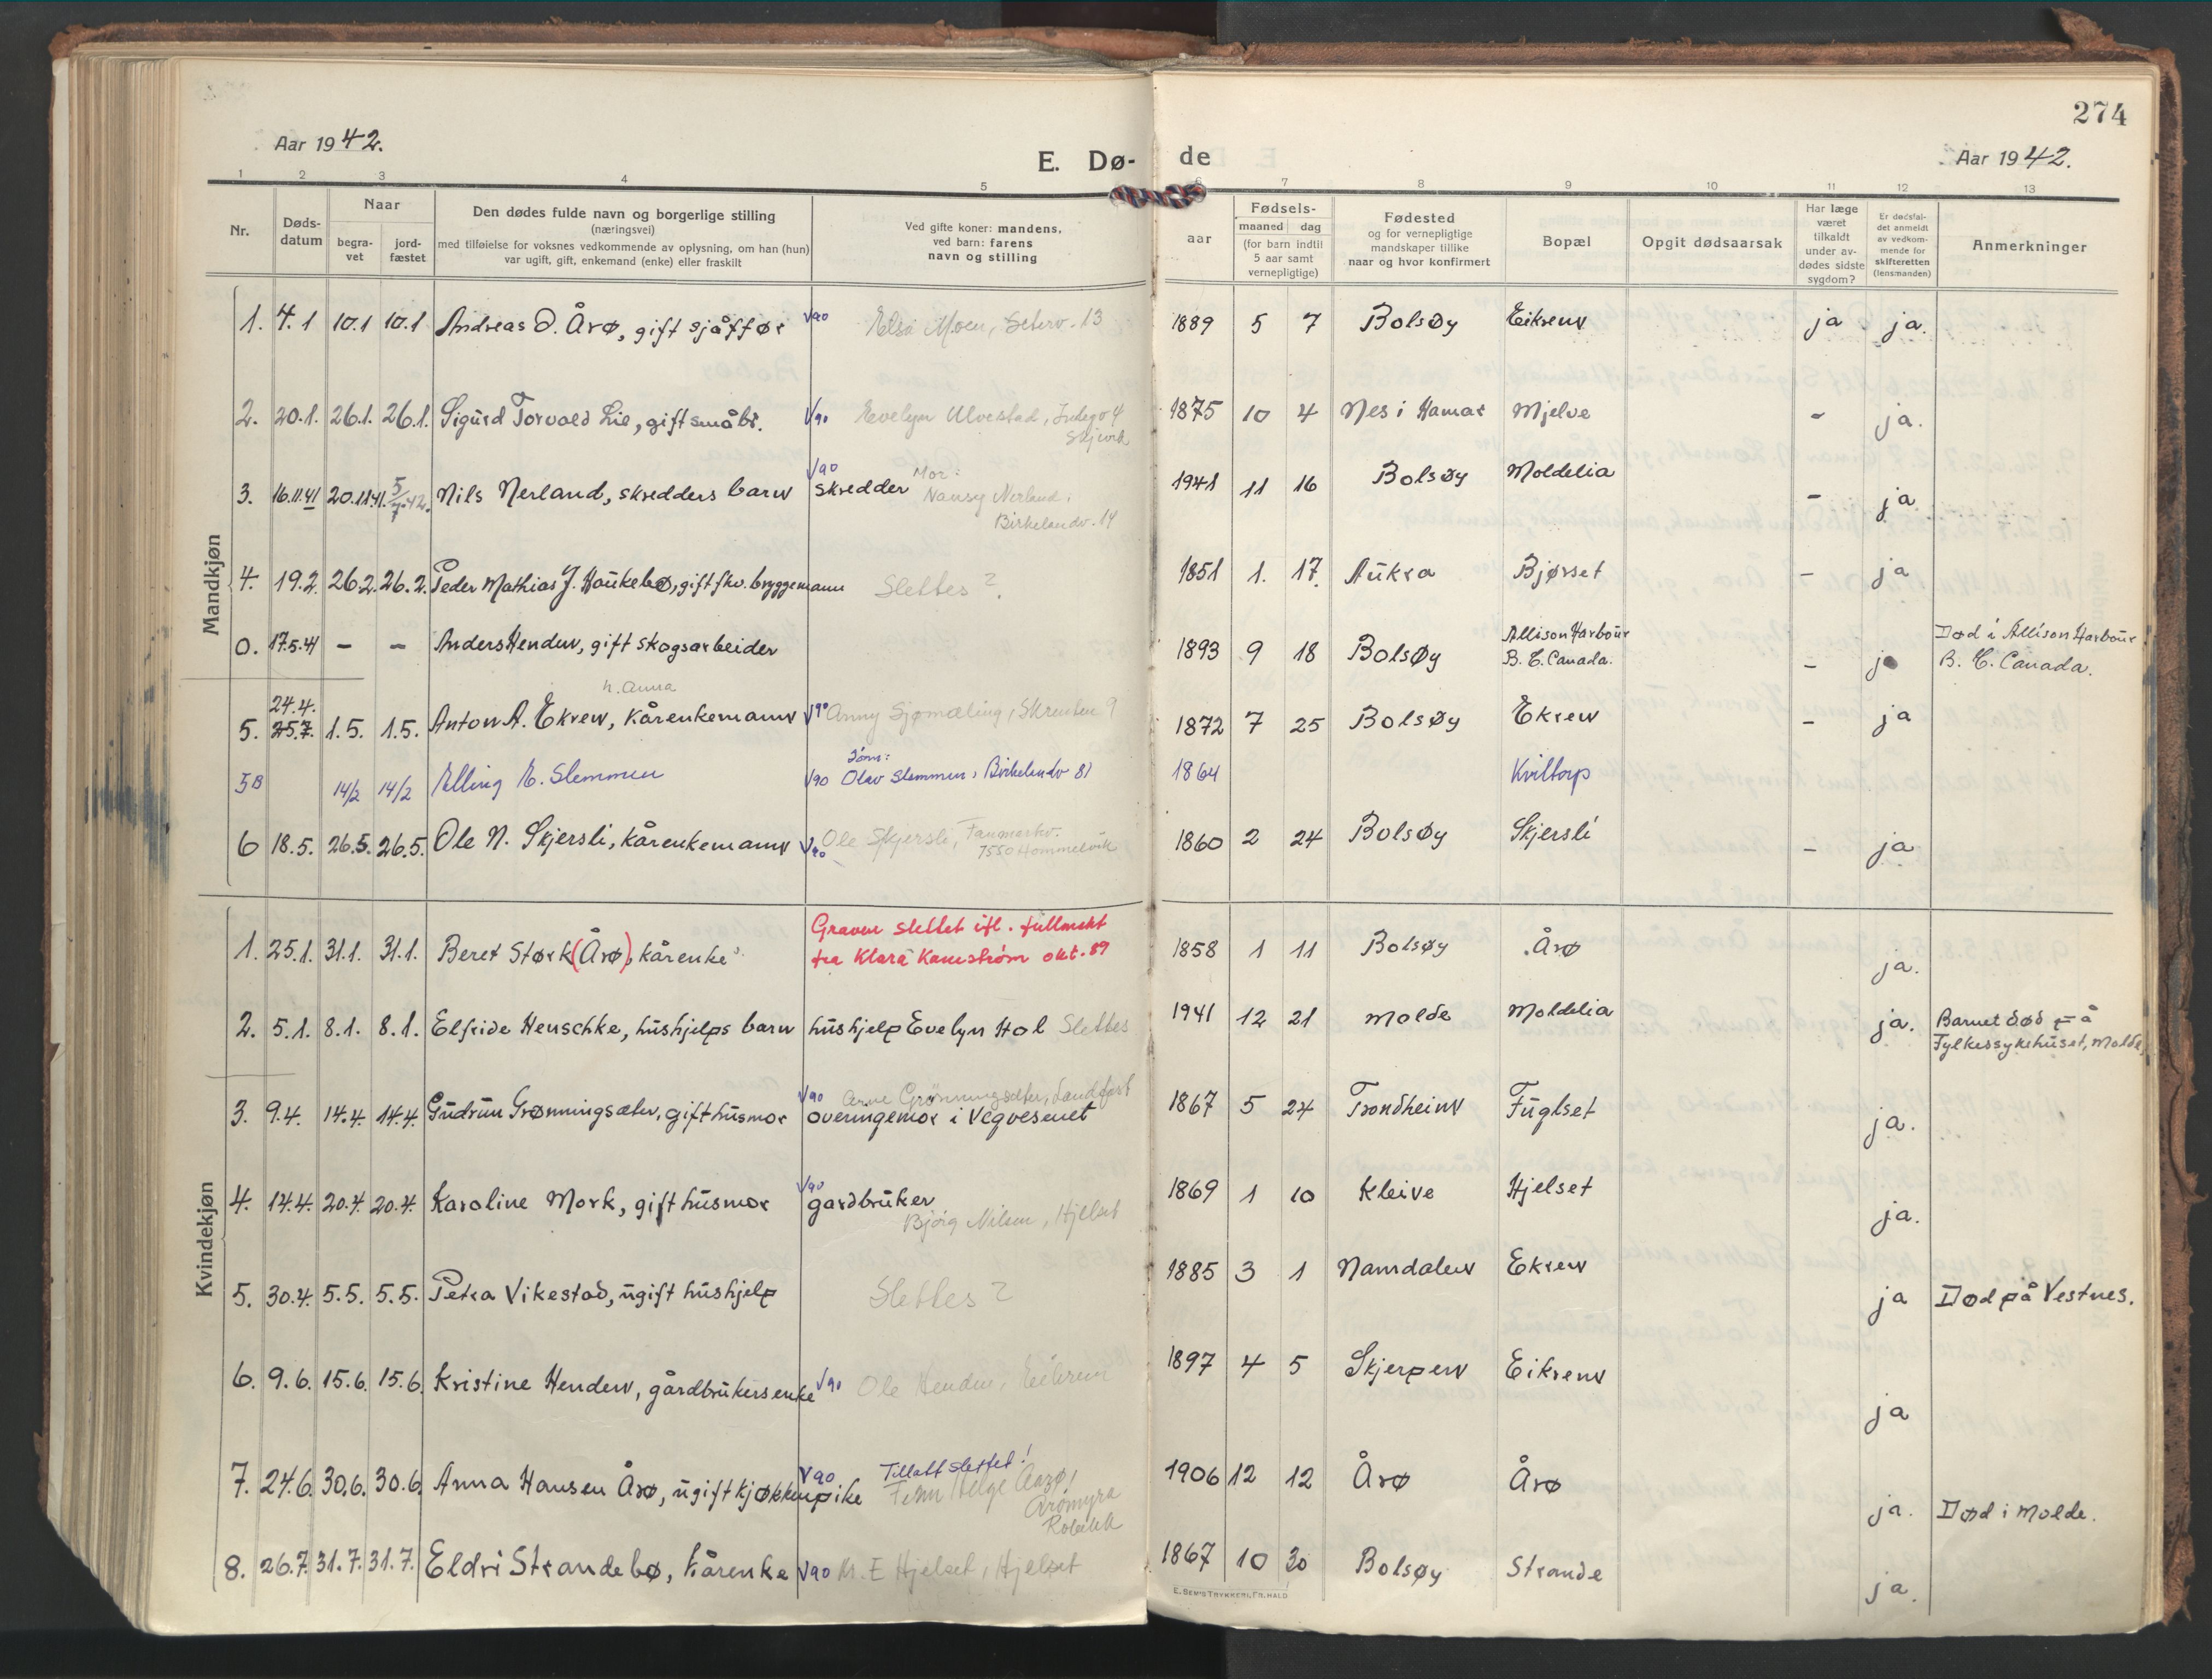 274
Aar 1942.
E. Dø- de
Aar 1942.
1 2 3 4 5 6 7 8 9 10 11 12 13
Nr.
Døds-
datum
Naar
begra-
vet
jord-
fæstet
Den dødes fulde navn og borgerlige stilling
(næringsvei)
med tilføielse for voksnes vedkommende av oplysning, om han (hun)
var ugift, gift, enkemand (enke) eller fraskilt
Ved gifte koner: mandens,
ved barn: farens
navn og stilling
Fødsels-
aar
maaned dag
(for barn indtil
5 aar samt
vernepligtige)
Fødested
og for vernepligtige
mandskaper tillike
naar og hvor konfirmert
Bopæl
Opgit dødsaarsak
Har læge
været
tilkaldt
under av-
dødes sidste
sygdom?
Er dødsfal-
det anmeldt
av vedkom-
mende for
skifteretten
(lensmanden)
Anmerkninger
Mandkjøn
1. 4.1 10.1 10.1 Andreas O. Årø, gift sjåffør V90 Elsa Moen, Seterv. 13 1889 5 7 Bolsøy Eikrem ja ja.
2. 20.1. 26.1. 26.1. Sigurd Torvald Lie, gift småbr. V90 Evelyn Ulvestad, 1875 10 4 Nes i Hamar Mjelve - ja.
V90 Mor:
3. 16.11.41 20.11.41. 5/7.42. Nils Nerland, skredders barn skredder Nansy Nerland, 1941 11 16 Bolsøy Moldelia - ja
Birkelandv. 14
4. 19.2. 26.2. 26.2. Peder Mathias J. Haukebø, gift fhv. bryggemann Slettes? 1851 1. 17. Aukra Bjørset - ja
0. 17.5.41 - - Anders Henden, gift skogsarbeider 1893 9 18 Bolsøy Allison Harbour - ja Død i Allison Harbour
B.C. Canada. B.C. Canada.
h. Anna
24.4.
5. 25.7. 1.5. 1.5. Anton A. Ekren, kårenkemann V90 Anny Sjømæling, Skrenten 9 1872 7 25 Bolsøy Ekren - ja
Sønn:
5B 14/2 14/2 Elling E. Slemmen V90 Olav Slemmen, Birkelandv 81 1864 Kviltorp
6 18.5. 26.5. 26.5. Ole N. Skjersli, kårenkemann V90 Ole Skjersli, 1860 2 24 Bolsøy Skjersli - ja
7550 Hommelvik
Kvindekjøn
Graven slettet ifl. fullmakt
1. 25.1. 31.1. 31.1. Beret Stork (Årø), kårenke fra Klara Kanestrøm okt. 89 1858 1 11 Bolsøy Årø ja.
2. 5.1. 8.1. 8.1. Elfride Henschke, hushjelps barn hushjelp Evelyn Hol Slettes 1941 12 21 Molde Moldelia ja. Barnet død på
Fylkessykehuset, Molde.
V90 Arne Grönningsæter, Landfast
3. 9.4. 14.4. 14.4. Gudrun Grønningsæter, gift husmor overingeniør i Vegvesenet 1867 5 24 Trondheim Fuglset ja.
V90
4. 14.4. 20.4. 20.4. Karoline Mork, gift husmor gardbruker 1869 1 10 Kleive Hjelset ja.
Bjørg Nilsen, Hjelset
5. 30.4. 5.5. 5.5. Petra Vikestad, ugift hushjelp Slettes? 1885 3 1 Namdalen Ekren ja Død på Vestnes.
6. 9.6. 15.6. 15.6. Kristine Henden, gårdbrukersenke V90 Ole Henden, Eikrem 1897 4 5 Skjerpen Eikrem ja
V90 Tillatt slettet!
7. 24.6. 30.6. 30.6. Anna Hansen Årø, ugift kjøkkenpike Finn Helge Aarø, 1906 12 12 Årø Årø ja. Død i Molde.
Årømyra
Røbekk
8. 26.7. 31.7. 31.7. Eldri Strandebø, kårenke V90 M. E Hjelset, Hjelset 1867 10 30 Bolsøy Strande ja.
E. SEM'S TRYKKERI, FR. HALD